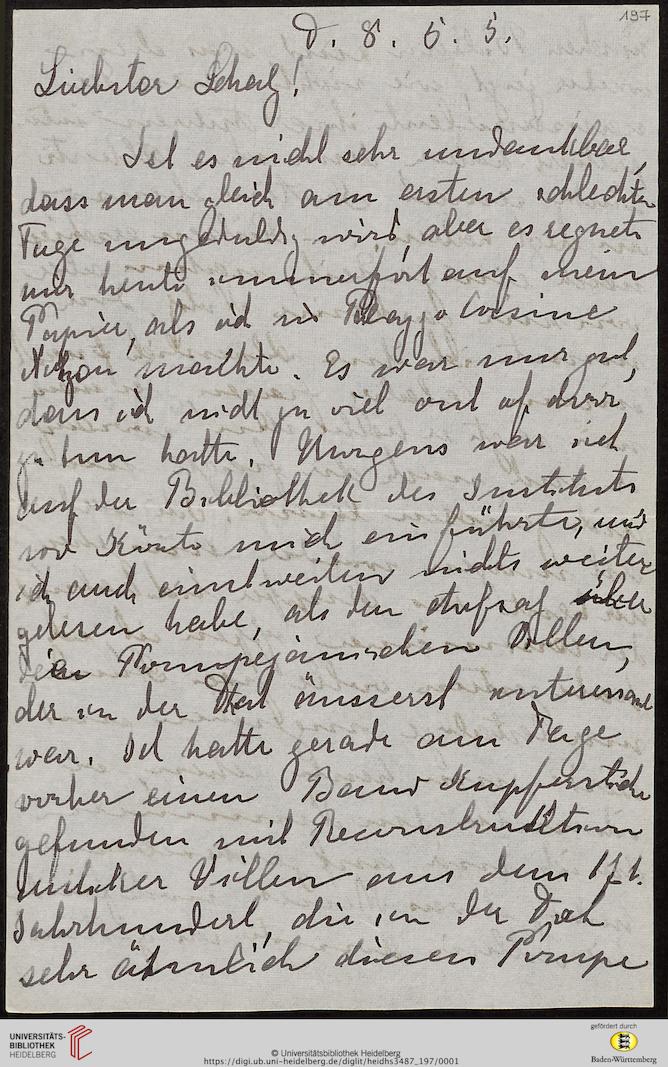 197
D. 8. 6. 5.
Liebster Schatz!
Ist es nicht sehr undankbar,
dass man gleich am ersten schlechten
Tage ungeduldig wird, aber es regnete
mir heute immerfort auf mein
Papier, als ich in Poggio
machte. Es war nur gut,
dass ich nicht zu viel
zu tun hatte. Morgens war ich
auf der Bibliothek des Instituts
wo Körte mich einführte, und
ich auch einstweilen nichts weiter
gelesen habe, als den Aufsatz über
die Pompejanischen Villen,
der in der Tat äusserst interessant
war. Ich hatte gerade am Tage
vorher einen Band Kupferstiche
gefunden mit Reconstruktionen
antiker Villen aus dem 17t.
Jahrhundert, die in der Tat
sehr ähnlich diesen Pompe
UNIVERSITÄTS-
BIBLIOTHEK
HEIDELBERG
© Universitätsbibliothek Heidelberg
https://digi.ub.uni-heidelberg.de/diglit/heidhs3487_197/0001
gefördert durch
Baden-Württemberg